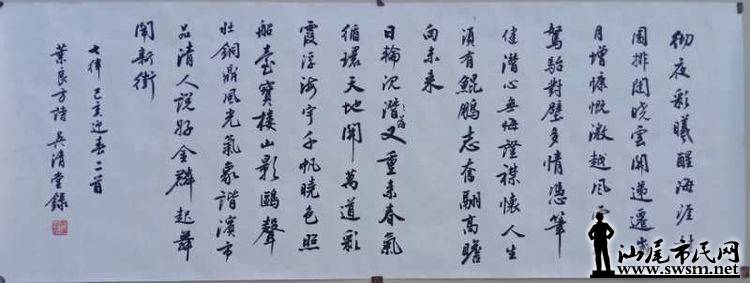 彻夜彩曦醒海涯
團排闼晓雲開遞遷
月增慷慨激越風
駑駘對壁多情憑筆
健潜心無悔證襟懷人生
須有鯤鵬志奮翮高瞻
向未来
日輪沉潜落又重来春氣
循環天地開萬道彩
霞浮海宇千帆曉色照
船臺寶樓山影鷗聲
壯銅鼎風光氣象諧濱市
品清人說好金麟起舞
闹新街
七律 己亥迎春二首
葉良方詩 吳清堂錄
汕尾市民网
www.swsm.net